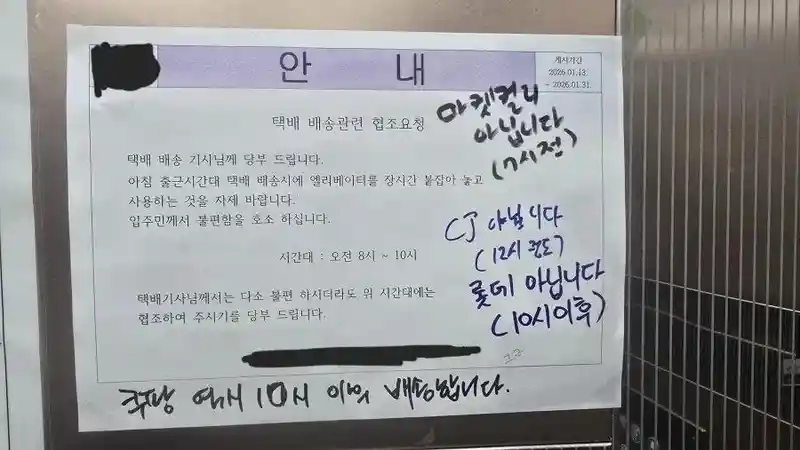 안 내
게시기간
2026.01.13
~ 2026.01.31
택배 배송관련 협조요청
택배 배송 기사님께 당부 드립니다.
아침 출근시간대 택배 배송시에 엘리베이터를 장시간 붙잡아 놓고
사용하는 것을 자제 바랍니다.
입주민께서 불편함을 호소 하십니다.
시간대 : 오전 8시 ~ 10시
택배기사님께서는 다소 불편 하시더라도 위 시간대에는
협조하여 주시기를 당부 드립니다.
마켓컬리
아닙니다
(7시전)
CJ 아닙니다
(12시 정도)
롯데 아닙니다
(10시이후)
ㄱㄱ
쿠팡 역시 10시 이외 배송합니다.